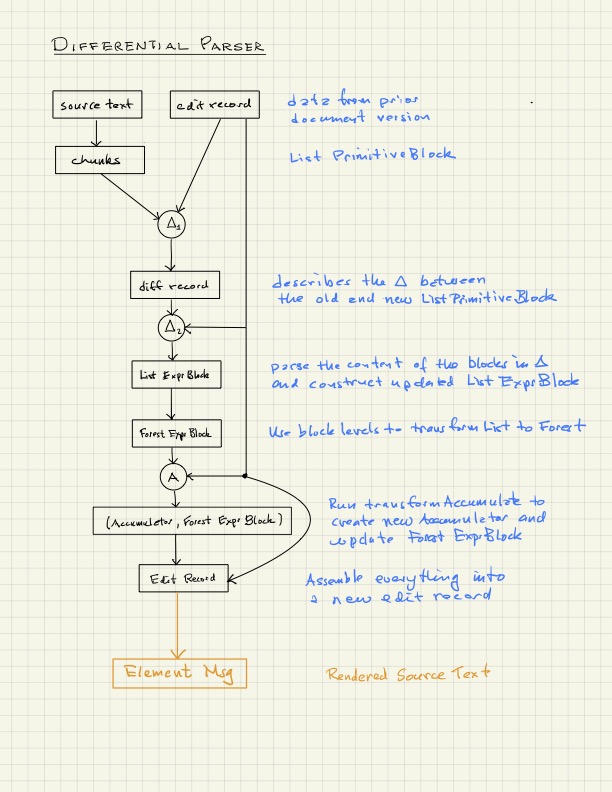 DIFFERENTIAL PARSER
source text
edit record
data from prior
document version
chunks
List PrimitiveBlock
Δ1
diff record
describes the Δ between
the old and new List PrimitiveBlock
Δ2
List ExprBlock
parse the content of the blocks in Δ
and construct updated List ExprBlock
Forest ExprBlock
Use block levels to transform List to Forest
A
(Accumulator, Forest ExprBlock)
Run transformAccumulate to
create new Accumulator and
update Forest ExprBlock
Edit Record
Assemble everything into
a new edit record
Element Msg
Rendered Source Text